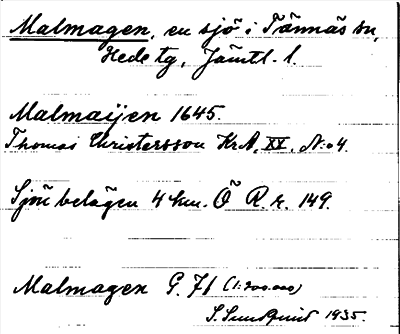 Malmagen, en sjö i Tännäs sn,
Hede tg, Jämtl. l.
Malmaijen 1645.
Thomas Christersson KrA, XX, No 4.
Sjön belägen 4 km. Ö R. r. 149.
Malmagen G. 71 (1:200.000)
S. Sundquist 1935.